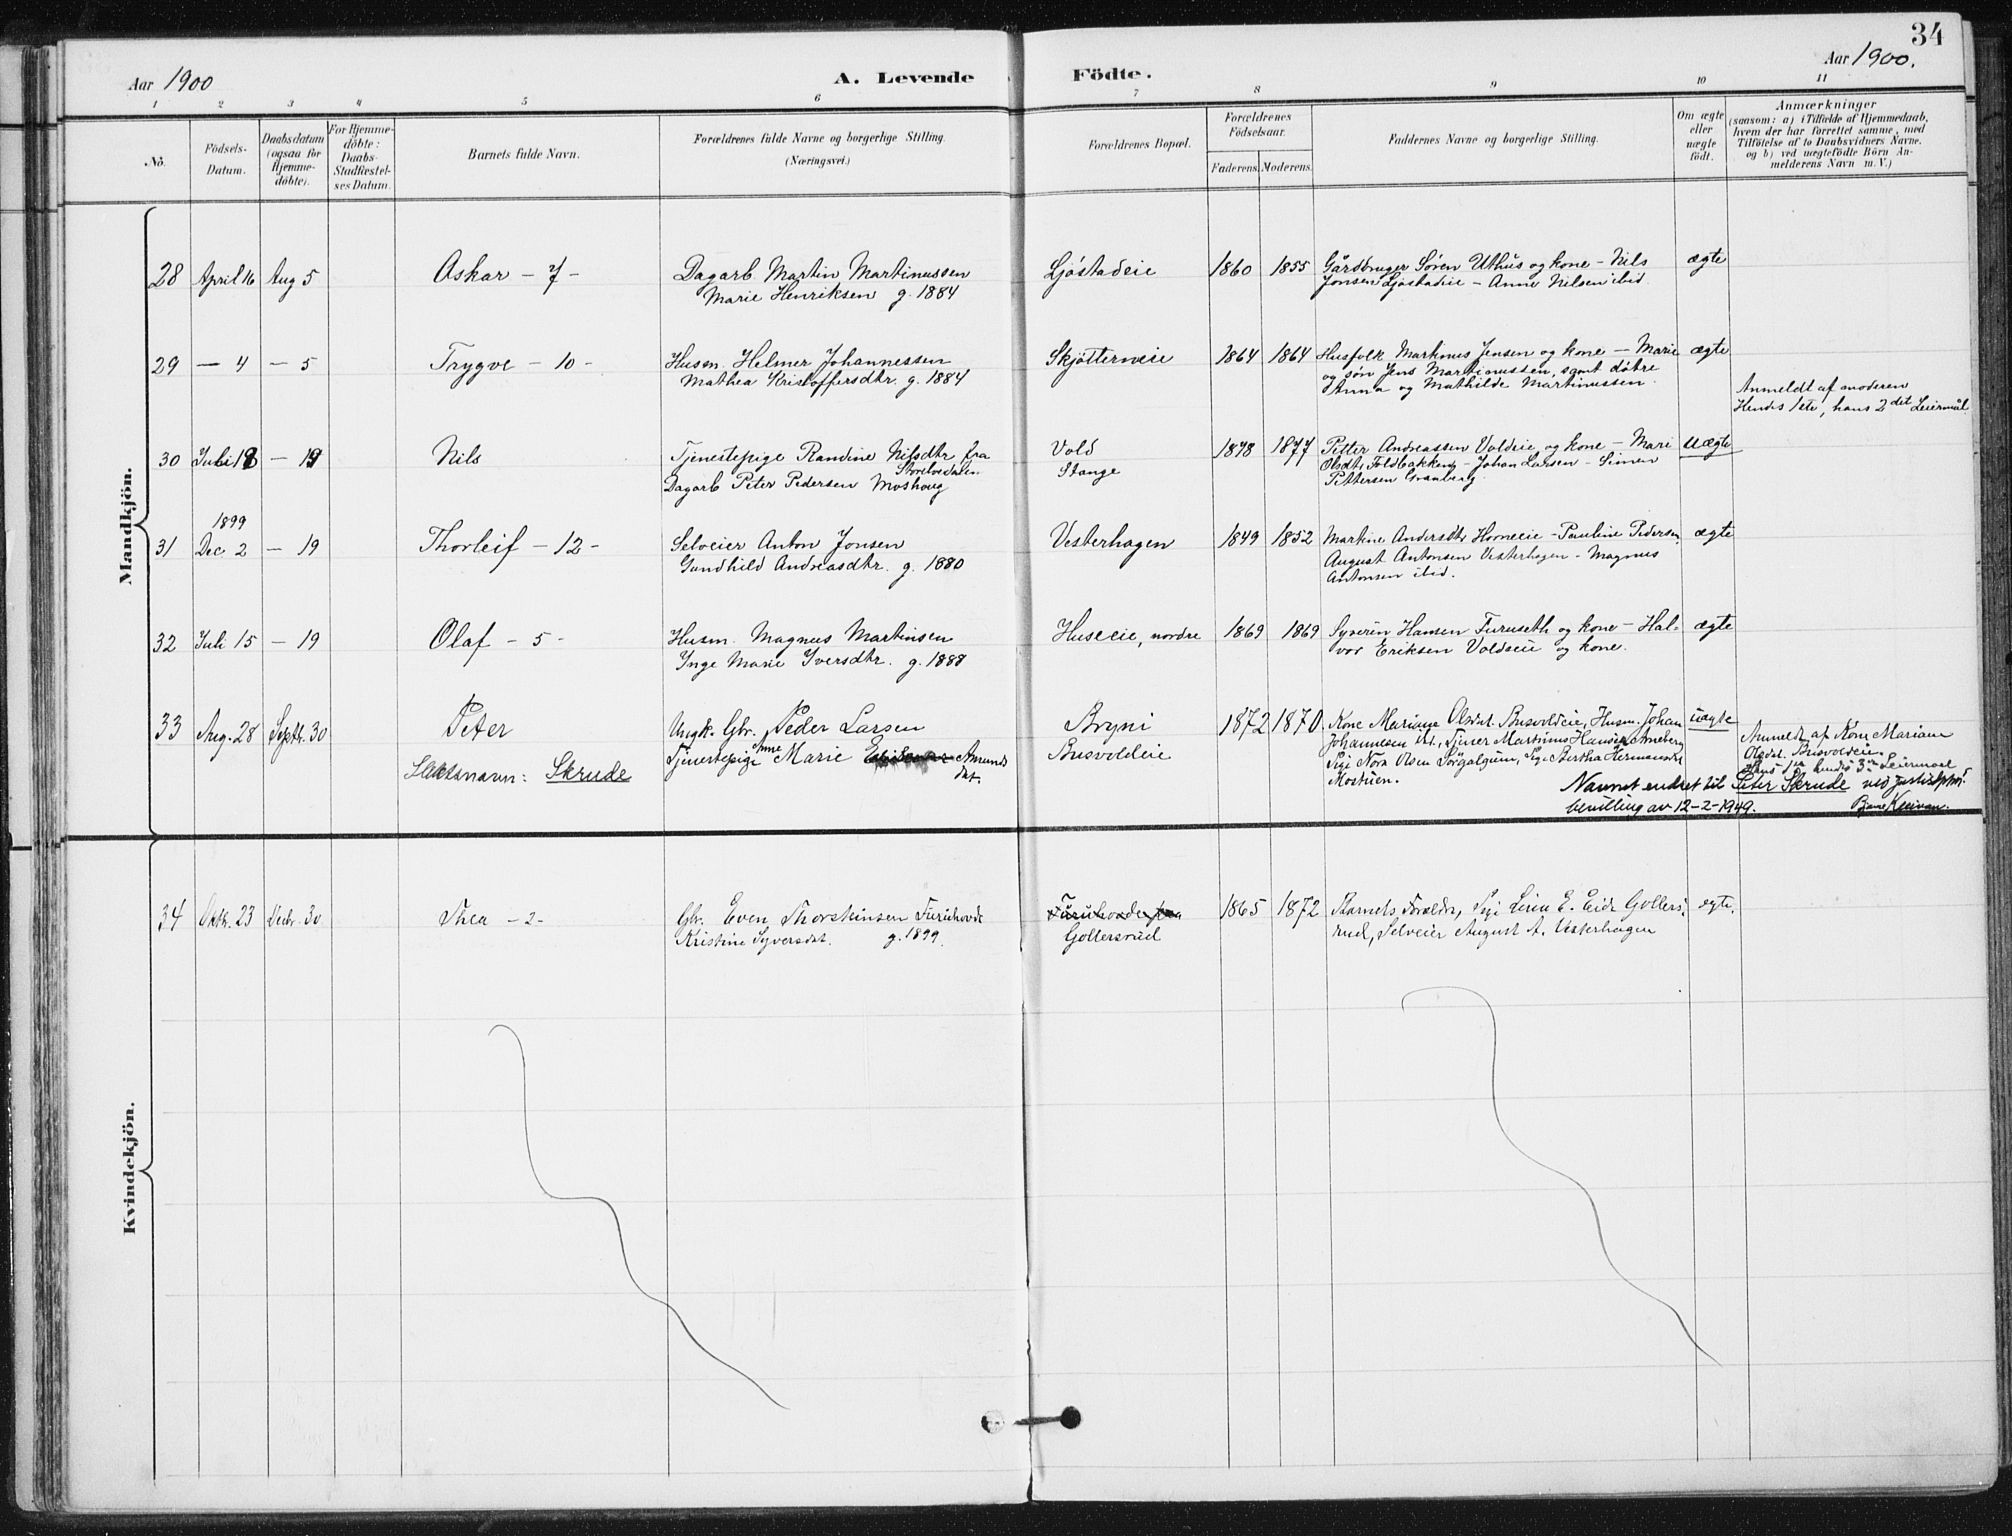 34
Aar 1900
A. Levende
Födte.
Aar 1900.
1 2 3 4 5 6 7 8 9 10 11
No.
Födsels-
Datum.
Daabsdatum
(ogsaa for
Hjemme-
döbte).
For Hjemme-
döbte:
Daabs-
Stadfæstel-
ses Datum.
Barnets fulde Navn.
Forældrenes fulde Navne og borgerlige Stilling.
(Næringsvei.)
Forældrenes Bopæl.
Forældrenes
Födselsaar.
Faderens. Moderens.
Faddernes Navne og borgerlige Stilling.
Om ægte
eller
uægte
født.
Anmærkninger
(saasom: a) i Tilfælde af Hjemmedaab,
hvem der har forrettet samme, med
Tilföielse af to Daabsvidners Navne.
og b) ved uægtefödte Börn An-
melderens Navn m. V.)
Mandkjön.
28 April 16 Aug 5 Askar - 7 -
Dagarb. Martin Martinussen
Marie Henriksen g. 1884
Ljøstadeie 1860 1855
Gårdbruger Søren Uthus og kone - Nils
Jonsen Ljøstadeie - Anne Nilsen ibid
ægte
29 — 4 — 5 Trygve - 10 -
Husm. Helmer Johannessen
Mathea Kristoffersdtr. g. 1884
Skjøttерneie 1864 1864
Husfolk Martinus Jensen og kone — Marie
og søn Jens Martinussen, samt døtre
Anna og Mathilde Martinussen.
ægte
Anmeldt af moderen
Hendes 1ste, hans 2det Leiermål
30 Juli 18 — 19 Nils
Tjenestepige Randine Nilsdtr fra
Storelvedalen
Dagarb Peter Pedersen Moshoug
Vold
Stange
1878 1877
Petter Andreassen Voldeie og kone - Mari
Olsdtr Foldbakken - Johan Larsen - Simen
Pettersen Granberg.
uægte
31 1899
Dec 2 — 19 Thorleif - 12 -
Selveier Anton Jonsen
Gundhild Andreasdtr. g. 1880
Vesterhagen 1849 1852
Martine Andersdtr Horneeie - Pauline Pedersen,
August Antonsen Vesterhagen - Magnus
Antonsen ibid.
ægte
32 Juli 15 — 19 Olaf - 5 -
Husm. Magnus Martinsen
Inge Marie Iversdtr. g. 1888
Huseeie, nordre 1869 1869
Syverin Hansen Furuseth og kone - Hal-
vor Eriksen Voldseie og kone.
ægte
33 Aug. 28 Septr. 30 Peter
Slektsnavn: Skrude
Ungk. Gbr. Peder Larsen
Tjenestepige Anne Marie Amunds
dat.
Bryni
Busvoldeie
1872 1870.
Kone Mariane Olsdat. Busvoldeie, Husm. Johan
Johannesen ibd., Tjener Martinus Hansen Arneberg
Pige Nora Olsen Sørgalgum, Pige Bertha Hermansdt
Mostuen.
uægte
Anmeldt af Kone Mariane
Olsdat. Busvoldeie.
Hans 1ste hendes 3die Leiermaal
Navnet endret til Peter Skrude ved justisdptm.
bevilling av 12-2-1949.
Kvindekjön.
34 Oktbr. 23 Decbr. 30 Thea - 2 -
Gbr. Even Thorsteinsen Furuhovde
Kristine Syversdat. g. 1899.
Furuhovde
Gollersrud
1865 1872
Barnets Forældre, Pige Lina E. Eide Gollers-
rud, Selveier August A. Vesterhagen
egte.